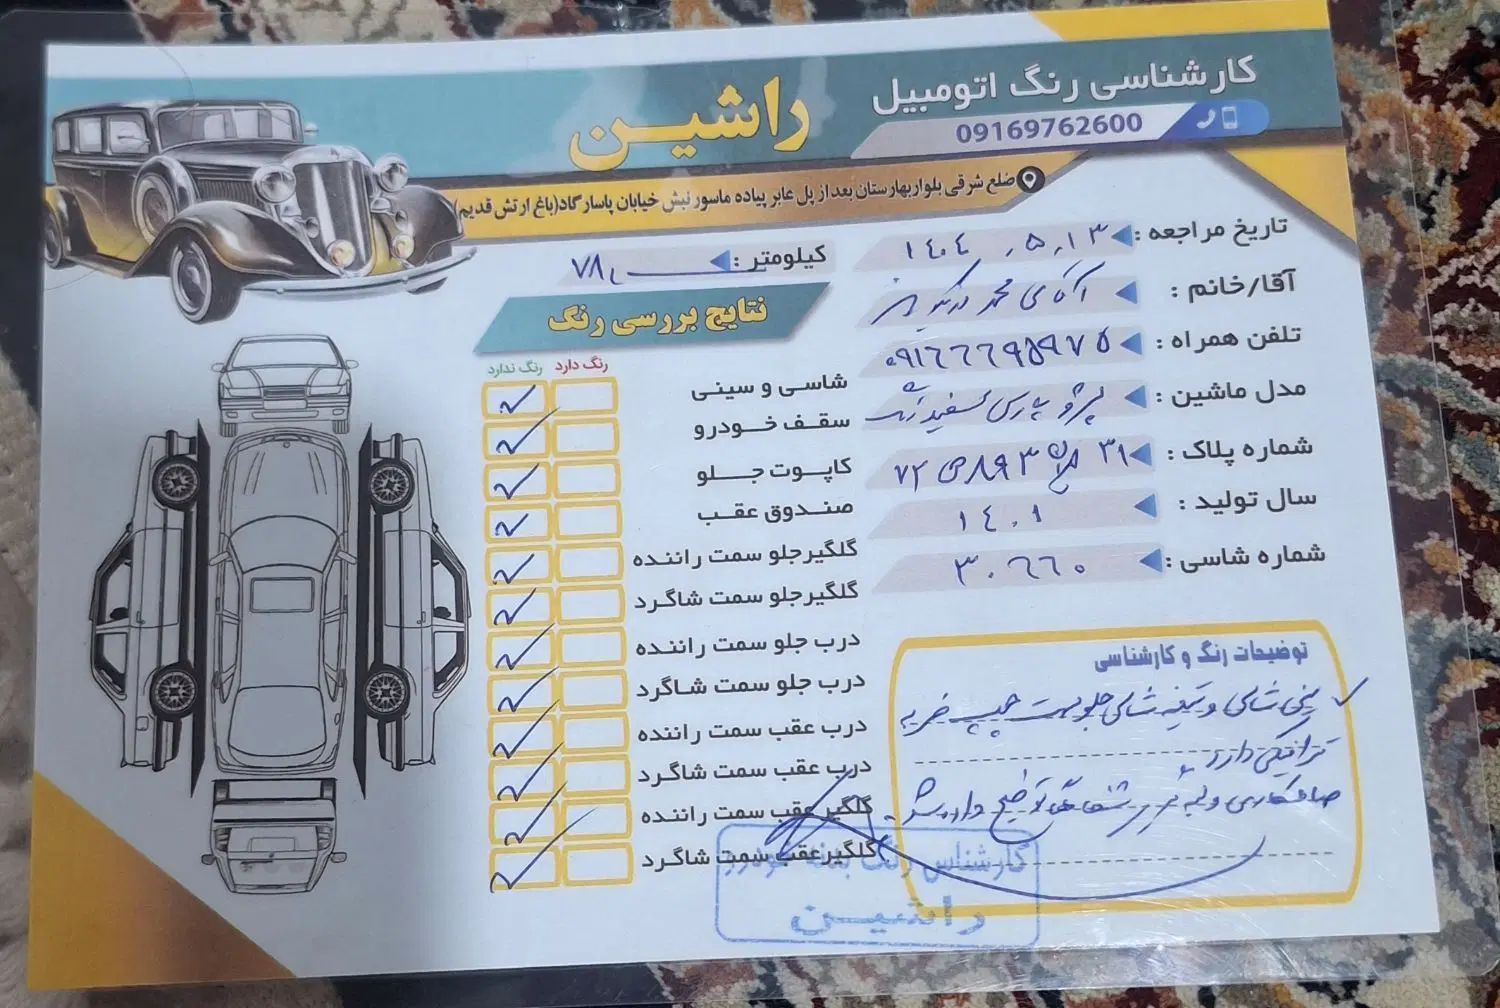 کارشناسی رنگ اتومبیل
09169762600
راشین
ضلع شرقی بلواربهارستان بعد از پل عابر پیاده ماسور نبش خیابان پاسارگاد(باغ ارتش قدیم)
تاریخ مراجعه : ۱۴۰۴.۵.۱۳
کیلومتر : ۷۸۰۰۰
آقا/خانم : آقای محمد
تلفن همراه : ۰۹۱۶۶۶۹۵۹۷۵
مدل ماشین : پژو پارس سفید رنگ
شماره پلاک : ۳۱ ۸۹۳ ص ۷۲
سال تولید : ۱۴۰۱
شماره شاسی : ۳۰۶۶۰
نتایج بررسی رنگ
رنگ دارد رنگ ندارد
شاسی و سینی ✓
سقف خودرو ✓
کاپوت جلو ✓
صندوق عقب ✓
گلگیر جلو سمت راننده ✓
گلگیر جلو سمت شاگرد ✓
درب جلو سمت راننده ✓
درب جلو سمت شاگرد ✓
درب عقب سمت راننده ✓
درب عقب سمت شاگرد ✓
گلگیر عقب سمت راننده ✓
گلگیر عقب سمت شاگرد ✓
توضیحات رنگ و کارشناسی
✓ سینی شاسی و تیغه شاسی جلو سمت چپ ضربه
ترافیکی دارد
صافکاری و لیه گیری شفاهی توضیح داده شد.
کارشناس رنگ بدنه خودرو
راشین